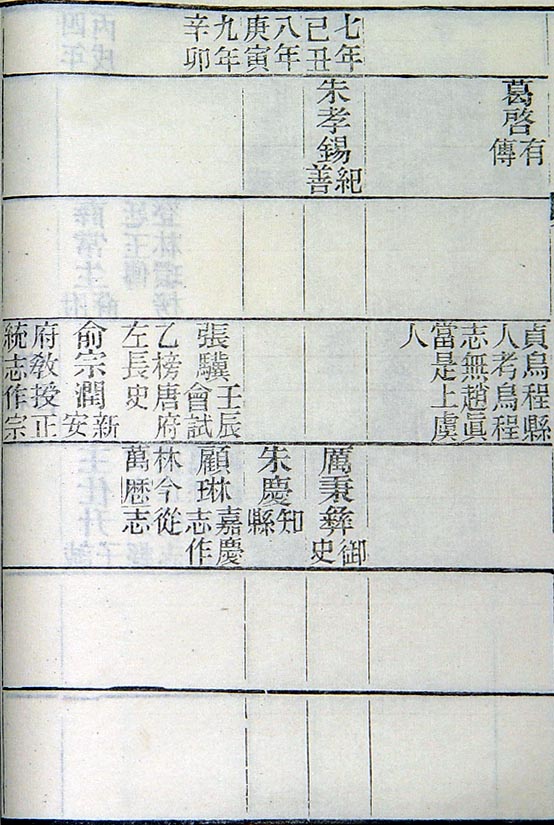 七年
己丑
八年
庚寅
九年
辛卯
葛啓有
傳
朱孝錫紀
善
貞烏程縣
人考烏程
志無趙眞
當是上虞
人
張驥壬辰
會試
乙榜唐府
左長史
俞宗潤新
安
府教授正
統志作宗
厲秉彝御
史
朱慶知
縣
顧琳嘉慶
志作
林今從
萬厯志